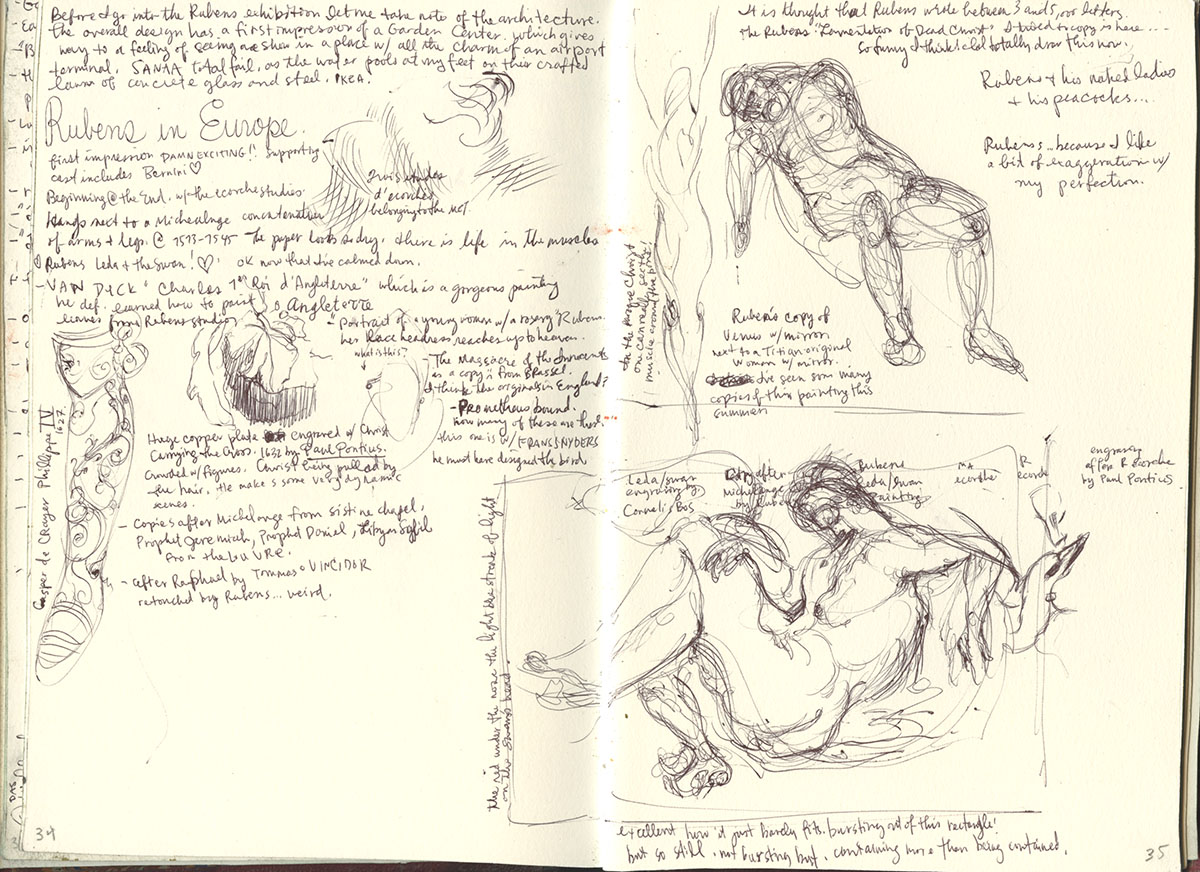 Before I go into the Rubens exhibition let me take note of the architecture.
The overall design has a first impression of a Garden Center. which gives
way to a feeling of seeing a show in a place w/ all the charm of an airport
terminal. SANAA total fail, as the water pools at my feet on their crafted
lawn of concrete glass and steel.
Rubens in Europe.
first impression DAMN EXCITING!! supporting
cast includes Bernini ♡
Beginning @ the End. w/ the ecorche studies.
Trois etudes
d'ecorchés
belonging to the
Hands next to a Michealnge concatenation
of arms + legs. @ 1573-1545 The paper looks so dry, there is life in the muscles
♡ Rubens Leda + the Swan! ♡ OK now that I've calmed down.
- VAN DYCK "Charles 1er Roi d'Angleterre" which is a gorgeous painting
he def. learned how to paint
Angleterre
from Rubens studio
- "Portrait of a young woman w/ a rosery" Rubens
her lace headress reaches up to heaven.
what is this?
The Massacre of the Innocents
is a copy "from Brassel.
I think the originals in England?
- Prometheus bound.
how many of these are there?
this one is w/ FRANS SNYDERS
he must have designed the bird
Gaspar de CRayer Phillippe IV
1627.
Huge copper plate engraved of Christ
Carrying the Cross. 1632 by Paul Pontius.
Crowded w/ figures. Christ being pulled by
the hair. He makes some very dynamic
scenes.
- Copies after Michelange from sistine chapel,
Prophet Jeremiah, Prophet Daniel, Libyan Sybil
from the LOUVRE.
- after Raphael by Tommaso VINCIDOR
retouched by Rubens... weird.
the red under the nose the light blue streak of light
on the swans head.
34
It is thought that Rubens wrote between 3 and 5,000 letters.
The Rubens "Lamentation of Dead Christ" I tried to copy is here....
So funny I think I'd totally draw this now.
Rubens + his naked ladies
+ his peacocks...
Rubens... because I like
a bit of exaggeration w/
my perfection.
In the Christ
one can really see the
muscle around the
Ruben's copy of
Venus w/ mirror
next to a Titian original
Woman w/ mirror.
I've seen som many
copies of this painting this
summer
Leda/swan
engraving by
Cornelis Bos
Copy after
Michelange
by
Rubens
Leda/swan
Painting
MA
ecorche
R
ecorche
engraving
after R ecorche
by Paul Pontius
excellent how it just barely fits. bursting out of this rectangle!
but so still. not bursting but. containing more than being contained.
35